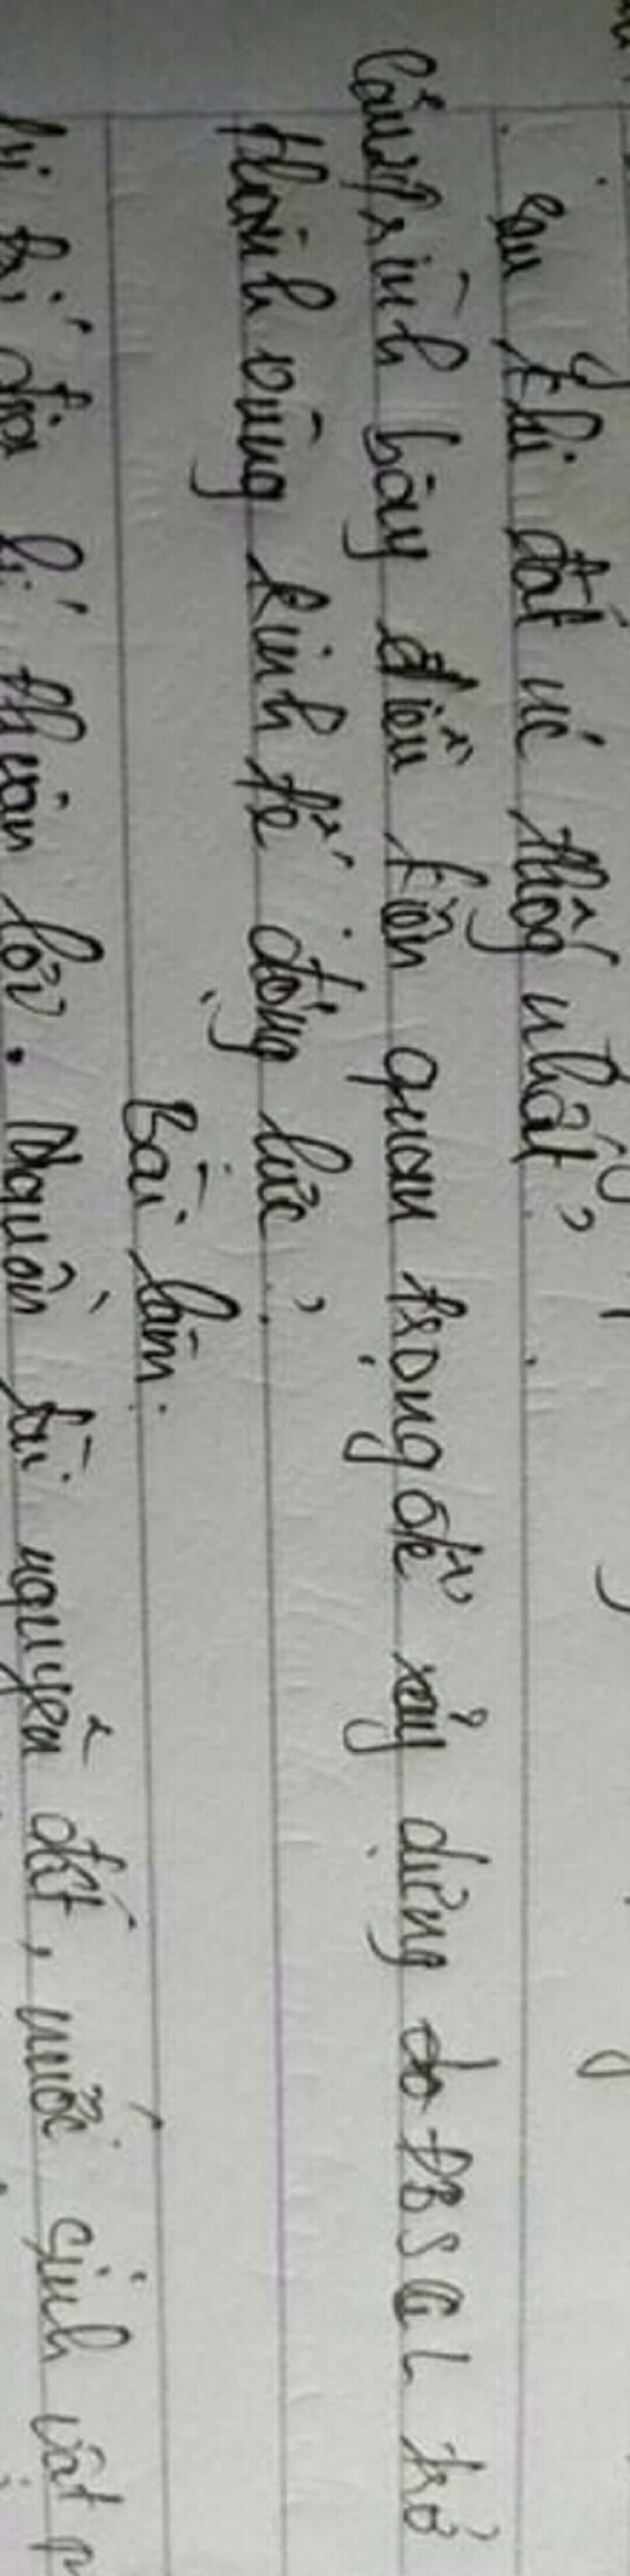 sau khi đất nc thống nhất?
Câu 2: trình bày điều kiện quan trọng để xây dựng ĐBSCL trở
thành vùng kinh tế động lực?
Bài làm.
trí địa lí thuận lợi. Nguồn tài nguyên đất, nước sinh vật